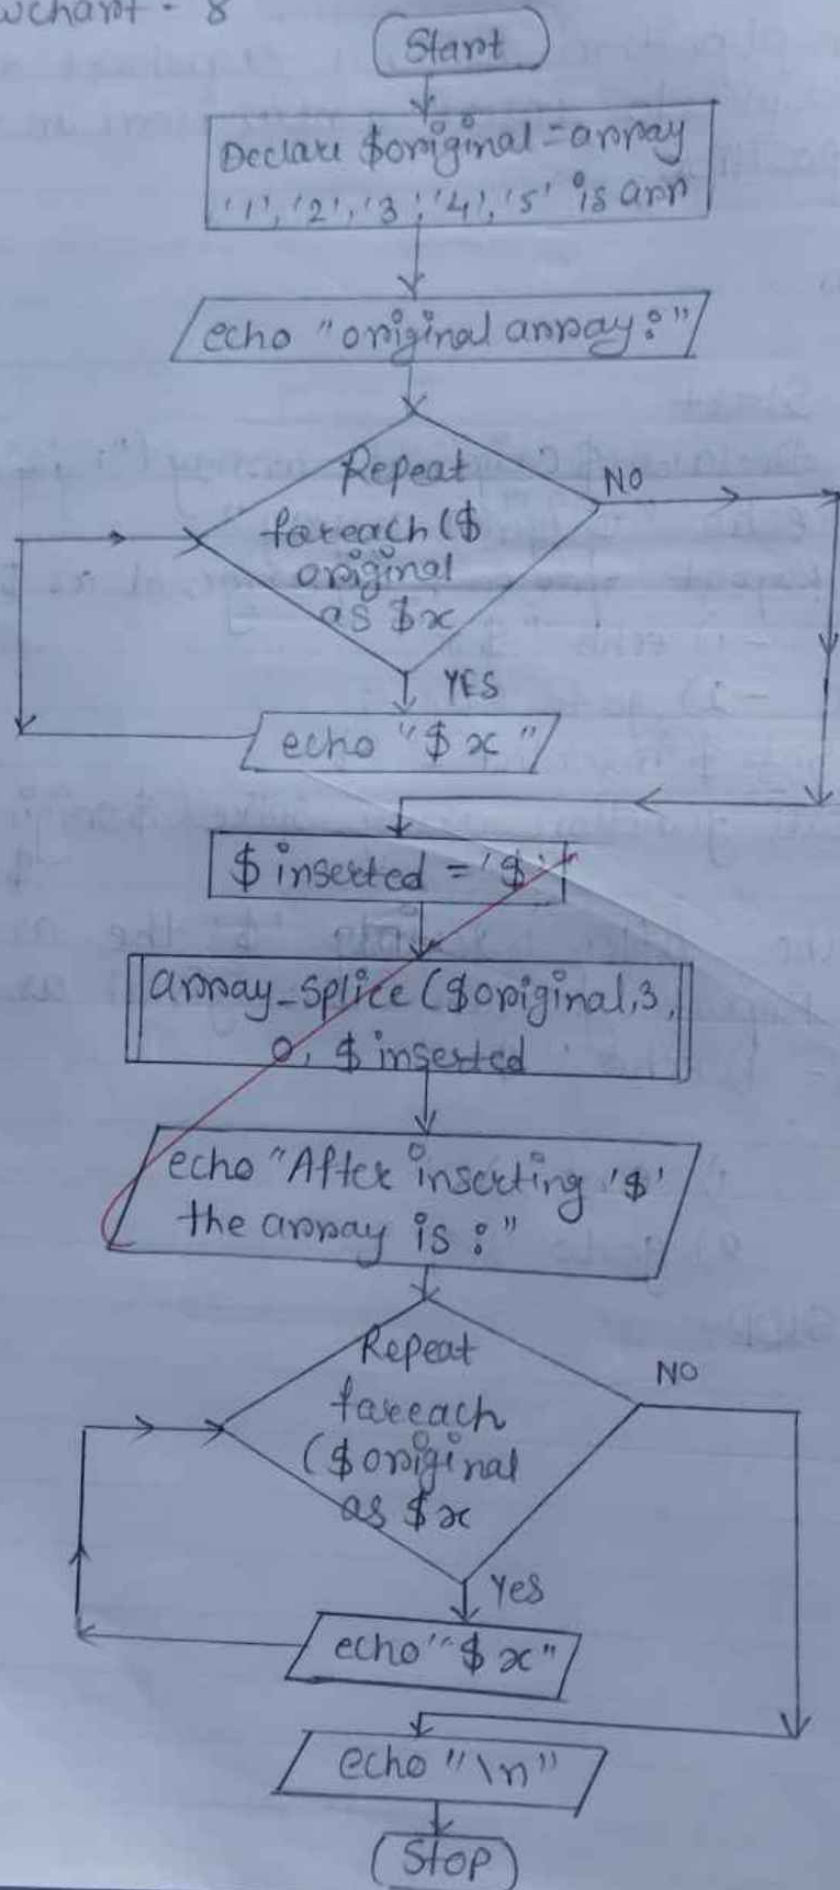 - 8
Start
Declare $original = array
'1', '2', '3', '4', '5' is arr
echo "original array:"
Repeat
foreach ($
original
as $x
NO
YES
echo "$x"
$inserted = '$'
array_splice ($original, 3,
0, $inserted
echo "After inserting '$'
the array is :"
Repeat
foreach
($original
as $x
NO
Yes
echo "$x"
echo "\n"
Stop